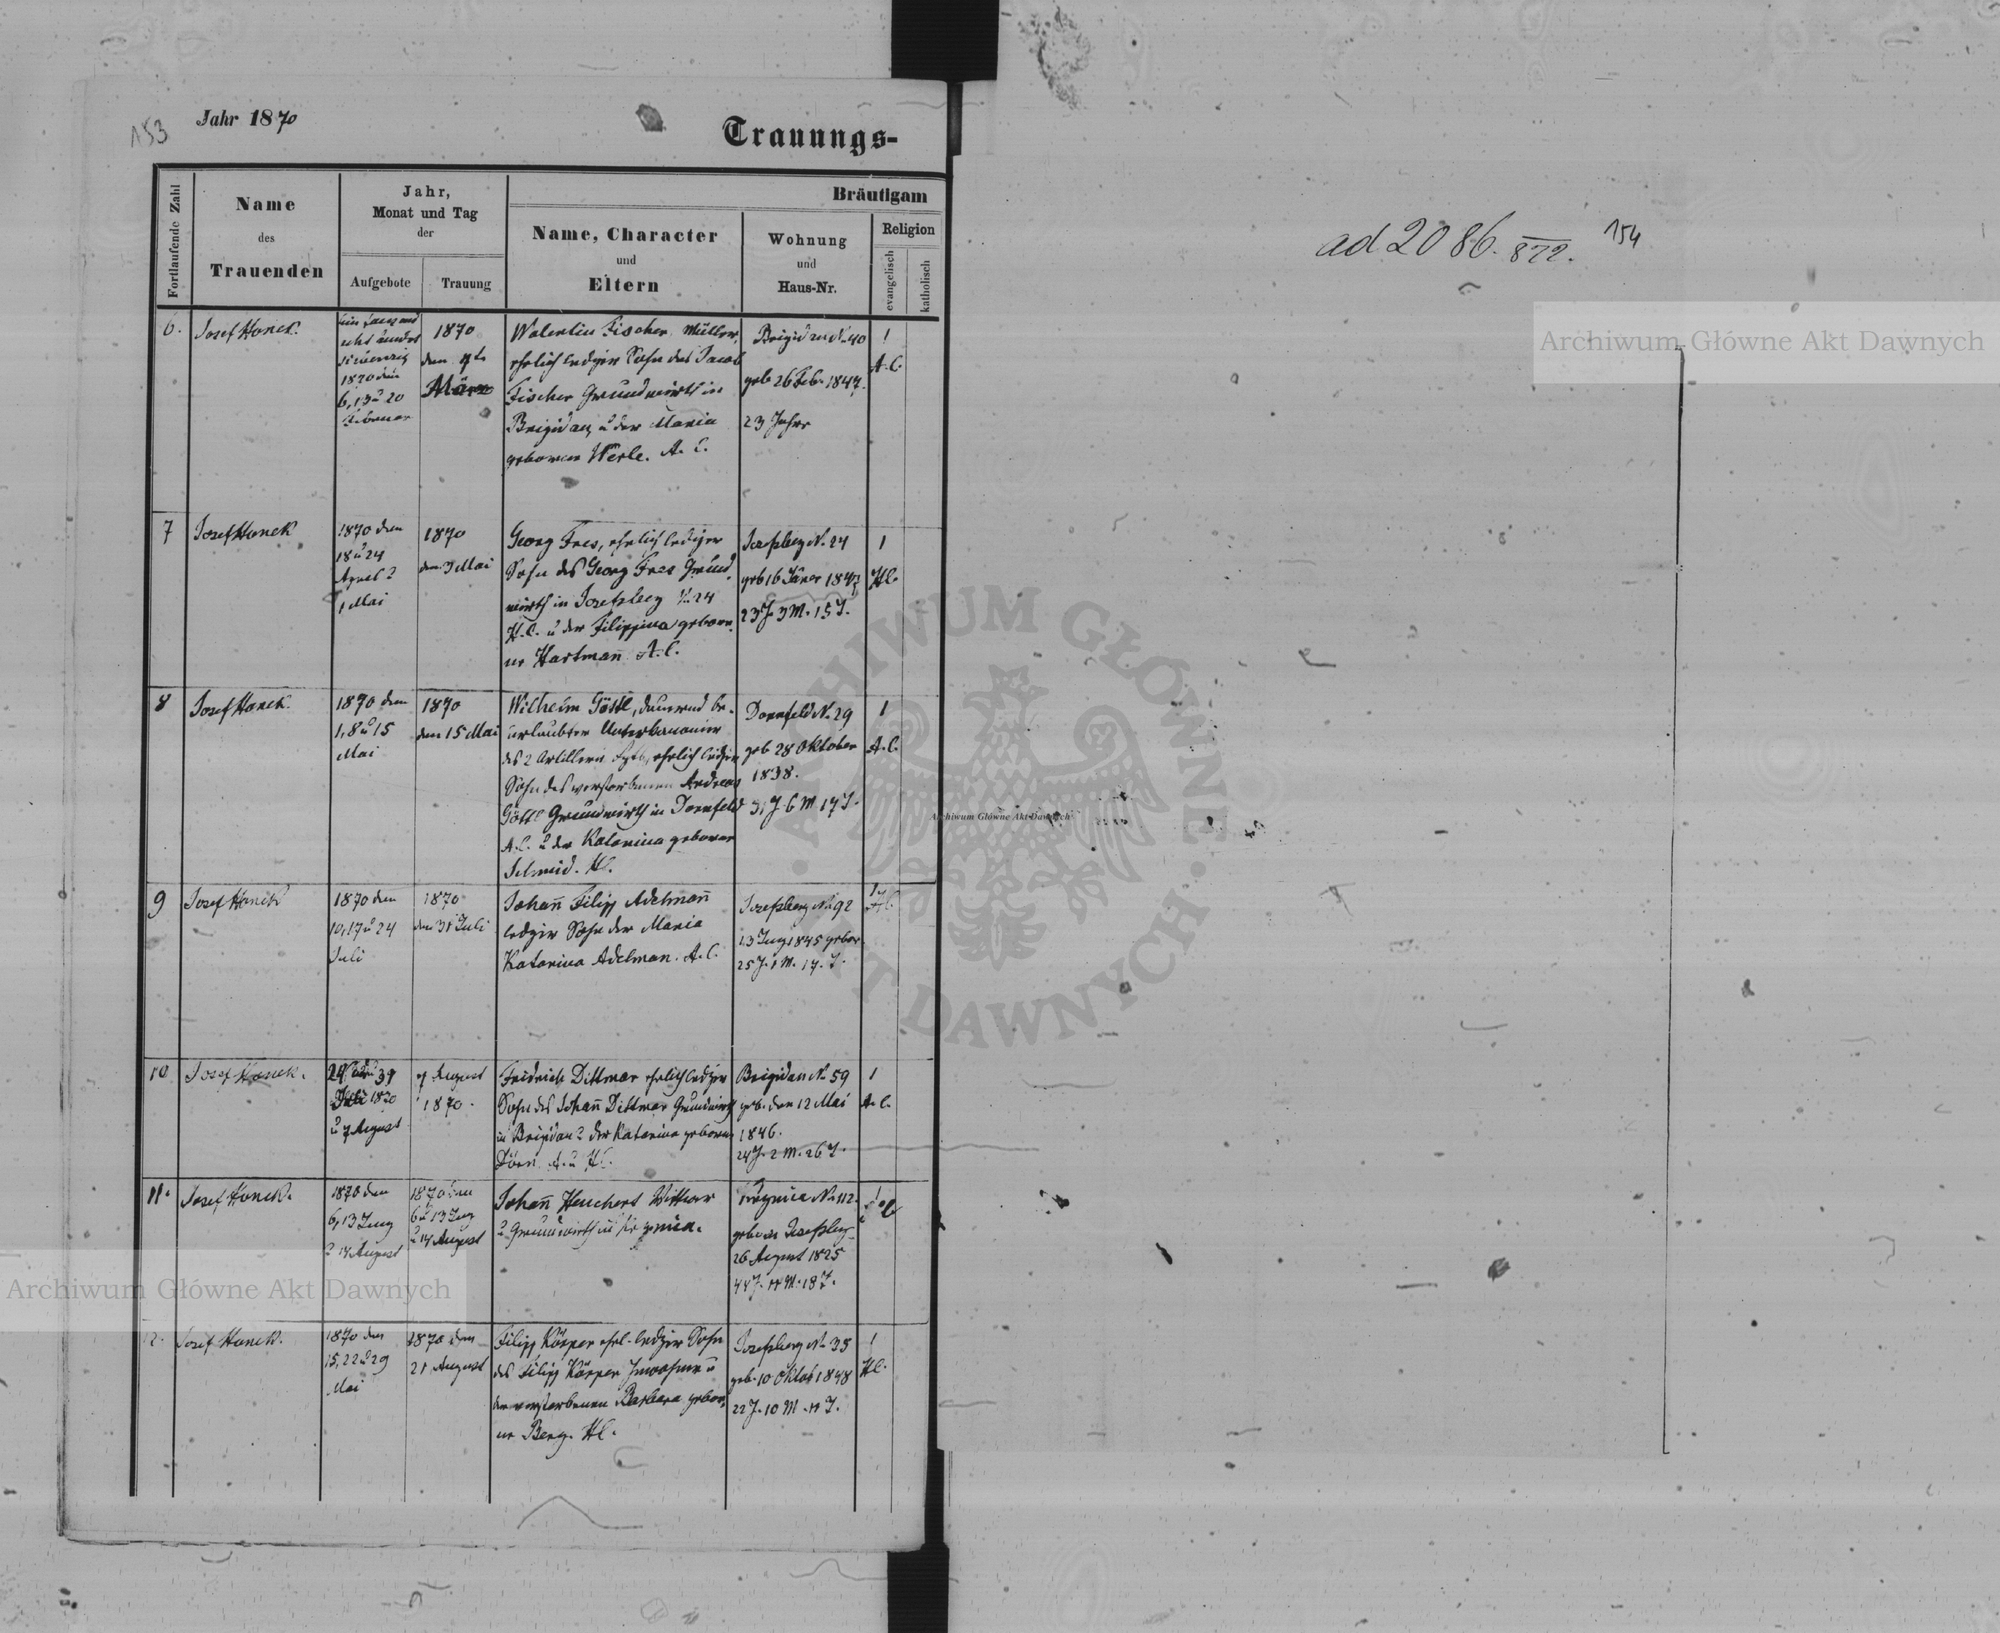 153
Jahr 1870
Trauungs-
ad 2086. 872.
154
Fortlaufende Zahl
Name
des
Trauenden
Jahr,
Monat und Tag
der
Aufgebote
Trauung
Bräutigam
Name, Character
und
Eltern
Wohnung
und
Haus-Nr.
Religion
evangelisch
katholisch
6.
Josef Hanek.
1870 den
6, 13 u 20
Februar
1870
den
März
Walentin Fischer Müller,
ehrlich lediger Sohn des Jacob
Fischer Grundwirth in
Brigidau u der Maria
geborner Werle. A. C.
Brigidau N. 40
geb 26 Feb. 1847.
23 Jahre
1
A. C.
7
Josef Hanek
1870 den
18 u 24
1 Mai
1870
den 3 Mai
Georg Fres, ehrlich lediger
Sohn des Georg Fres Grund
wirth in Josefsberg N 24
H. C. u der Filippina gebor
ne Hartmann A. C.
Josefsberg N. 24
geb 16 Jäner 1847
23 J. 3 M. 15 T.
1
H C.
8
Josef Hanek.
1870 den
1, 8 u 15
Mai
1870
den 15 Mai
Wilhelm Göttl, dauernd be-
urlaubter Unterkanonier
des 2 Artillerie ehrlich lediger
Sohn des verstorbenen Andreas
Göttl Grundwirth in Dornfeld
A. C. u der Katarina geborne
Schmid. H C.
Dornfeld N. 29
geb 28 Oktober
1838.
31 J. 6 M 17 T.
1
A. C.
9
Josef Hanek
1870 den
10, 17 u 24
Juli
1870
den 31 Juli
Johann Filipp Adelmann
lediger Sohn der Maria
Katarina Adelman. A. C.
Josefsberg N. 92
13 Juny 1845 gebor
25 J. 1 M. 17. T.
1
H C.
10
Josef Hanek.
24 31
Juli 1870
u 7 August
7 August
1870.
Fridrich Dittmar ehrlich lediger
Sohn des Johann Dittmar Grundwirth
in Brigidau u der Katarina geborne
Dörn A. u H C.
Brigidau N. 59
geb. den 12 Mai
1846.
24 J. 2 M. 26 T.
1
A. C.
11.
Josef Hanek.
1870 den
6, 13 Juny
u 14 August
1870 den
6 u 13 Juny
u 14 August
Johann Heuchert Wittwer
u Grundwirth in
N. 112.
geboren Josefsberg
26 August 1825
44 J. 11 M. 18 T.
1
12.
Josef Hanek.
1870 den
15, 22 u 29
Mai
1870 den
21 August
Filipp Körper ehrl. lediger Sohn
des Filipp Körper Inwohner u
der verstorbenen Barbara gebor
ne Berg. H C.
Josefsberg N. 35
geb. 10 Oktob 1848
22 J. 10 M. 11 T.
1
H C.
Archiwum Główne Akt Dawnych
Archiwum Główne Akt Dawnych
Archiwum Główne Akt Dawnych
ARCHIWUM GŁÓWNE AKT DAWNYCH